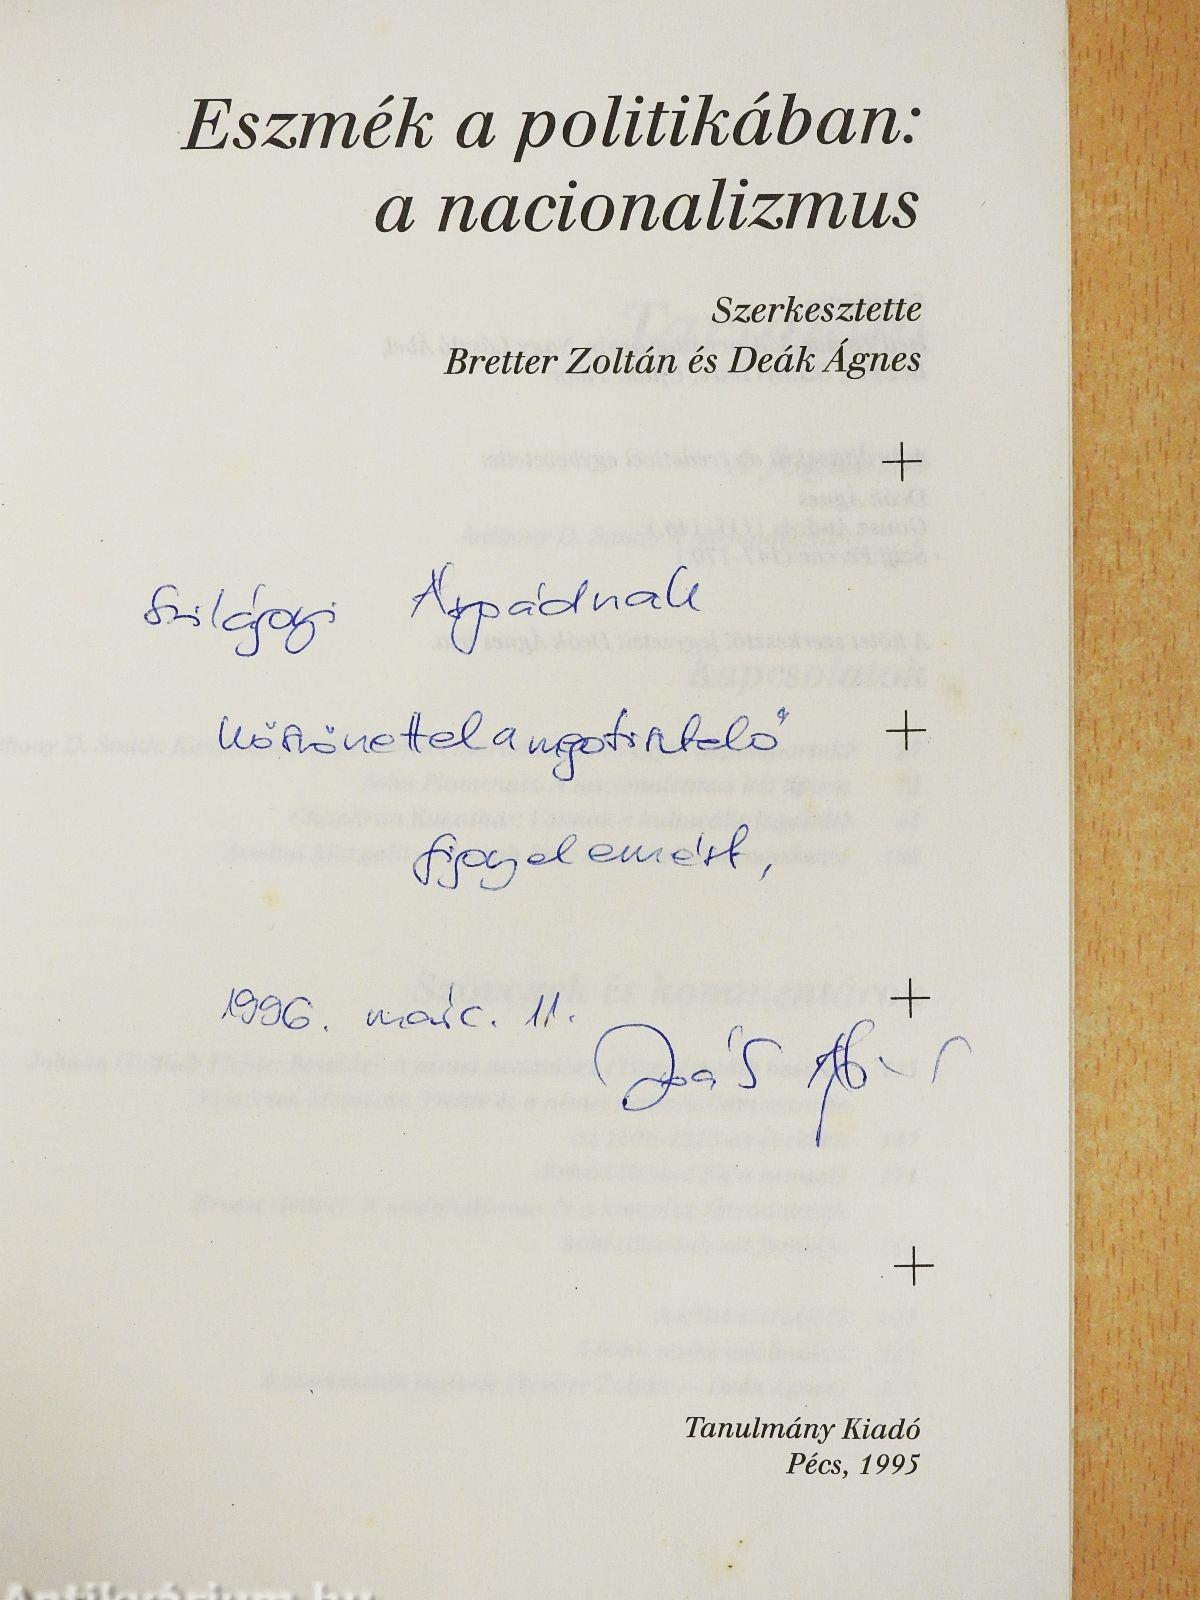 Eszmék a politikában:
a nacionalizmus
Szerkesztette
Bretter Zoltán és Deák Ágnes
Szilágyi Árpádnak
köszönettel a megtisztelő
figyelemért,
1996. márc. 11.
Deák Ágnes
Tanulmány Kiadó
Pécs, 1995
Antikvárium.hu